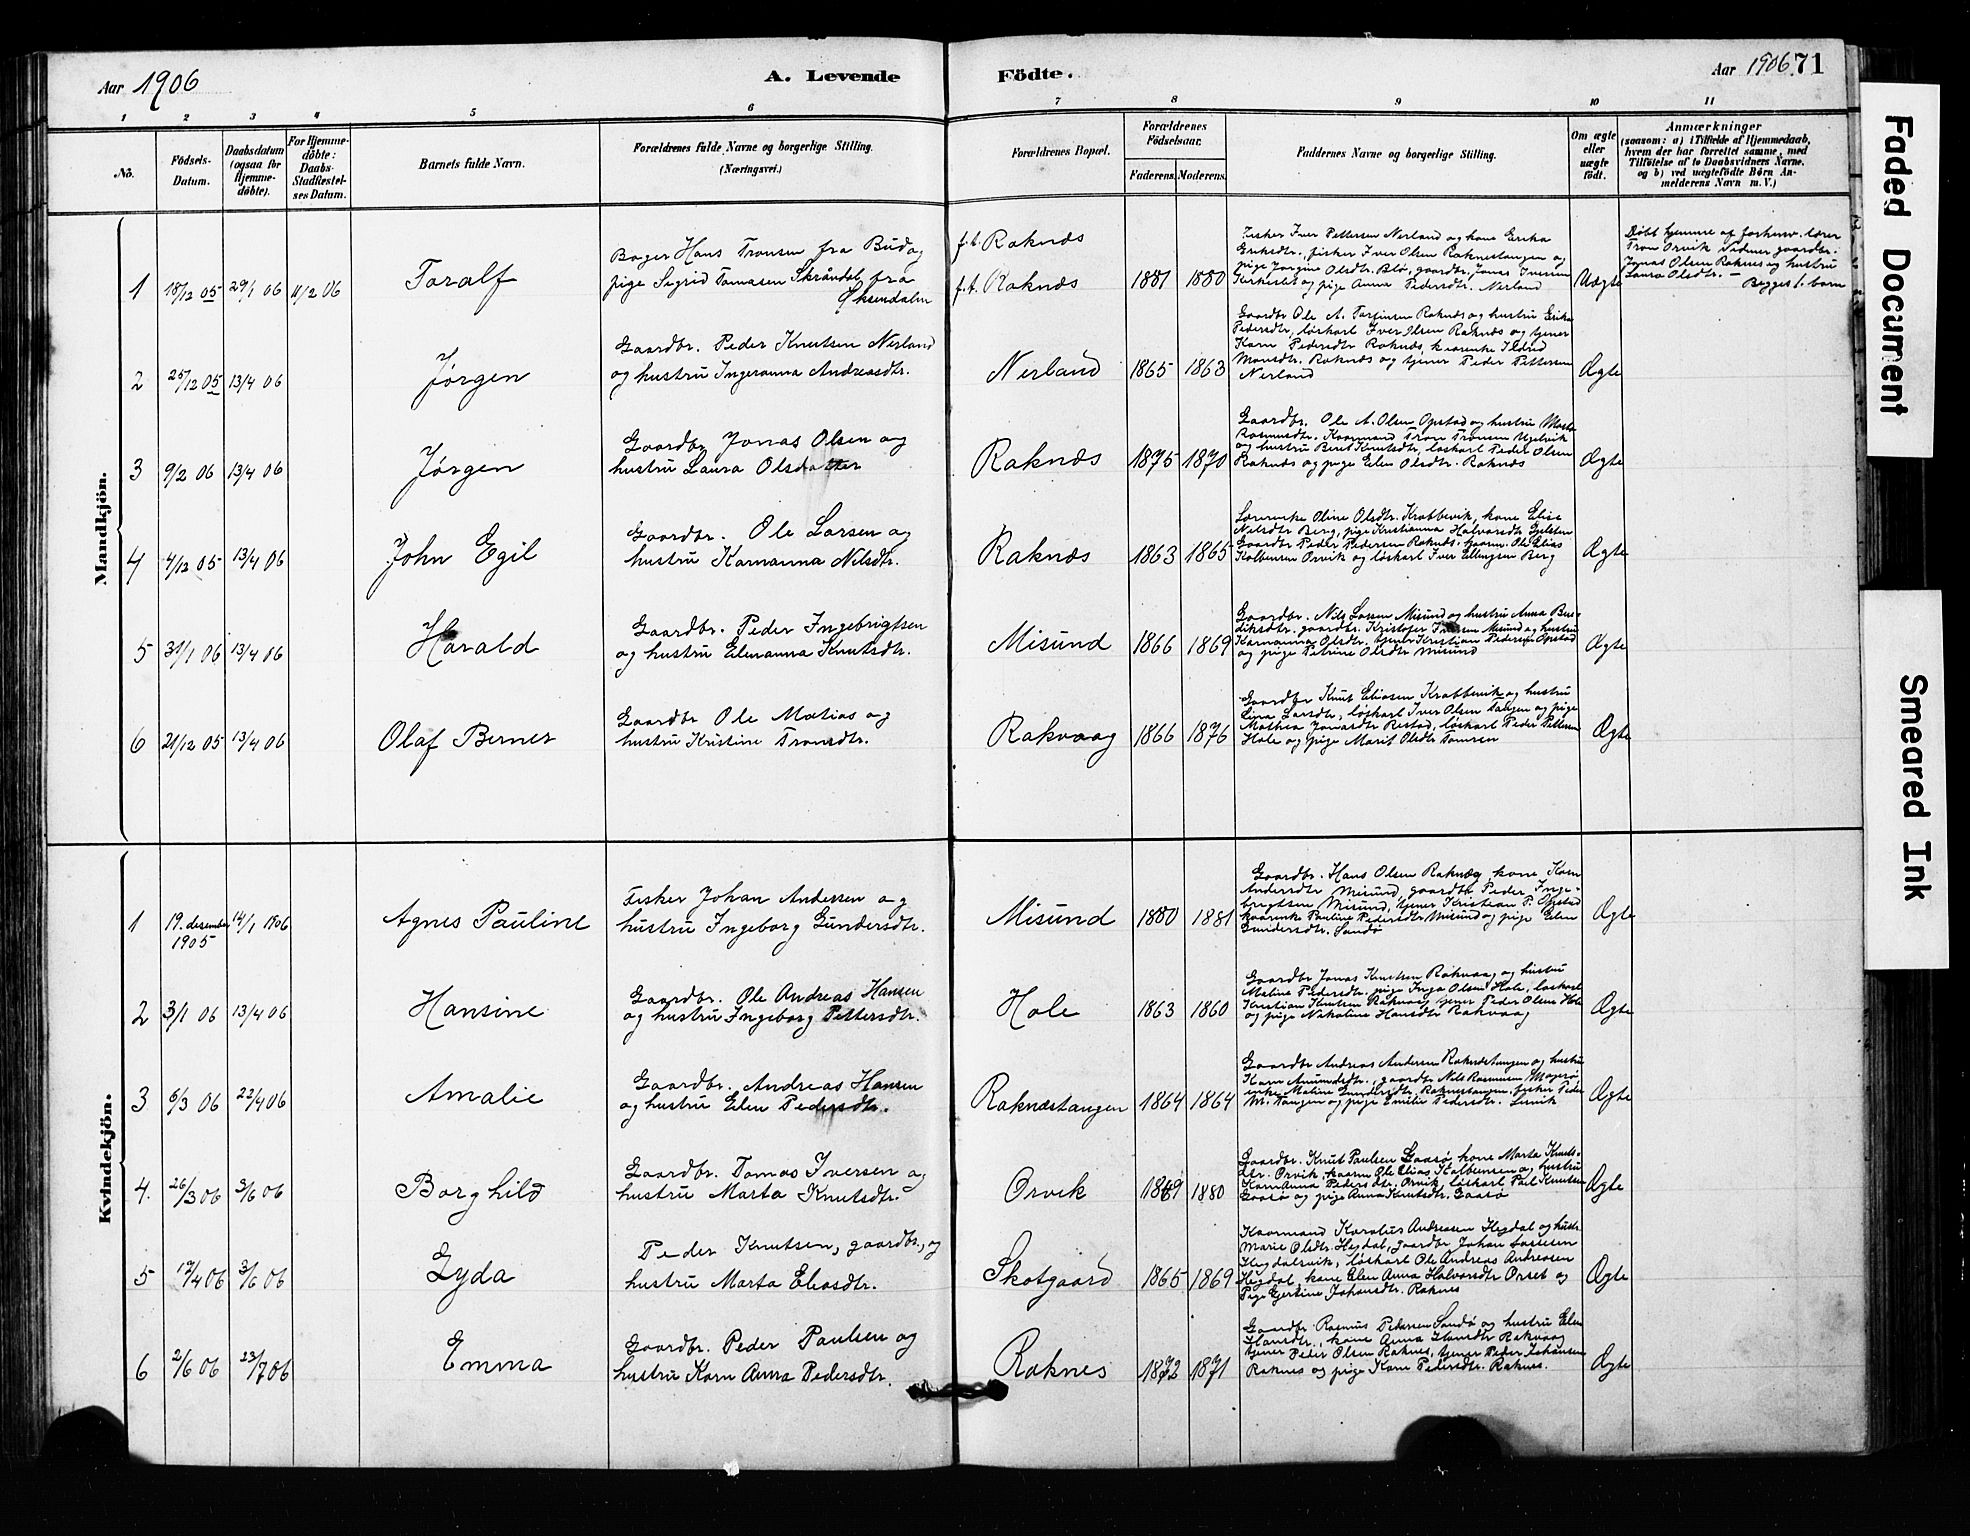 Aar 1906
A. Levende Födte.
Aar 1906. 71
1 2 3 4 5 6 7 8 9 10 11
No.
Födsels-Datum.
Daabsdatum (ogsaa for Hjemmedöbte).
For Hjemmedöbte: Daabs-Stadfæstelses Datum.
Barnets fulde Navn.
Forældrenes fulde Navne og borgerlige Stilling. (Næringsvei.)
Forældrenes Bopæl.
Forældrenes Födselsaar.
Faderens. Moderens.
Faddernes Navne og borgerlige Stilling.
Om ægte eller uægte födt.
Anmærkninger
(saasom: a) i Tilfælde af Hjemmedaab, hvem der har forrettet samme, med Tilföielse af to Daabsvidners Navne, og b) ved uægtefödte Börn Anmelderens Navn m. V.)
Mandkjön.
1 18/12 05 29/1 06 11/2 06 Toralf
Bager Hans Tronsen fra Bud og
pige Sigrid Tomasen Skråndal fra
Øksendalen
f.t. Raknæs
f.t. Raknæs 1881 1880
Fisker Iver Pettersen Nerland og kone Erika
Eriksdtr., fisker Iver Olsen Raknestangen og
pige Jørgine Olsdtr. Blø, gaardbr. Jonas Iversen
og pige Anna Pedersdtr. Nerland
Uægte
Døbt hjemme af forhenv. lærer
Tron Orvik Vidner gaardbr.
Jonas Olsen Raknes og hustru
Laura Olsdtr. —
Begges 1. barn
2 25/12 05 13/4 06 Jørgen
Gaardbr. Peder Knutsen Nerland
og hustru Ingeranna Andreasdtr.
Nerland 1865 1863
Gaardbr Ole A. Raknæs og hustru Erika
Pedersdtr, løskarl Iver Olsen Raknæs og tjener
Karn Pedersdtr Raknæs, Ildrid
Monsdtr. Raknæs og tjener Peder Pettersen
Nerland
Ægte
3 9/2 06 13/4 06 Jørgen
Gaardbr Jonas Olsen og
hustru Laura Olsdatter
Raknæs 1875 1870
Gaardbr. Ole A. Olsen Opstad og hustru
Rasmusdtr. Kaarmand Tron Tronsen
og hustru Berit Knutsdtr., løskarl Peder Olsen
Raknæs og pige Elen Olsdtr. Raknæs
Ægte
4 4/12 05 13/4 06 John Egil
Gaardbr. Ole Larsen og
hustru Karnanna Nilsdtr.
Raknæs 1863 1865
Oline Olsdtr. Krabbevik, kone Elise
Nilsdtr Berg, pige Kristianna Halvorsdtr
Gaardbr Peder Pedersen Raknæs, kaarm. Ole Elias
Kolbensen Orvik og løskarl Iver Ellingsen Berg
Ægte
5 31/1 06 13/4 06 Harald
Gaardbr. Peder Ingebrigtsen
og hustru Elenanna Knutsdtr.
Misund 1866 1869
Gaardbr. Nils Larsen Misund og hustru Anna Bendiksdtr.
gaardbr. Kristofer Misund og hustru
Karnanna Olsdtr. tjener Kristian Pedersen Opstad
og pige Petrine Olsdtr Misund
Ægte
6 21/12 05 13/4 06 Olaf Berner
Gaardbr Ole Matias og
hustru Kristine Tronsdtr.
Rakvaag 1866 1876
Gaardbr Knut Eliasen Krabbevik og hustru
Larsdtr, løskarl Iver Olsen Tangen og pige
Mathea Jonasdtr Restad, løskarl Peder Pettersen
Hole og pige Marit Olsdtr Tomren
Ægte
Kvindekjön.
1 19. desember 1905 14/1 1906 Agnes Pauline
Fisker Johan Andersen og
hustru Ingeborg Gundersdtr.
Misund 1880 1881
Gaardbr. Hans Olsen Raknæs, kone Karn
Andersdtr Misund, gaardbr Peder Ingebrigtsen
Misund, tjener Kristian P. Opstad
kaarenke Pauline Pedersdtr Misund og pige Elen
Gundersdtr. Sandø
Ægte
2 3/1 06 13/4 06 Hansine
Gaardbr. Ole Andreas Hansen
og hustru Ingeborg Pettersdtr.
Hole 1863 1860
Gaardbr Jonas Knutsen Rakvaag og hustru
Maline Pedersdtr. pige Inga Olsen Hole, løskarl
Kristian Knutsen Rakvaag tjener Peder Olsen Hole
og pige Nikoline Hansdtr Rakvaag
Ægte
3 6/3 06 22/4 06 Amalie
Gaardbr. Andreas Hansen
og hustru Elen Pedersdtr.
Raknæstangen 1864 1864
Gaardbr Andreas Andersen Raknæstangen og hustru
Karn Amundsdtr., gaardbr Nils Rasmusen Magerø
enke Maline Gundersdtr. Raknestangen, fisker Peder
M. Tangen og pige Emilie Pedersdtr.
Ægte
4. 26/3 06 3/6 06 Borghild
Gaardbr. Tomas Iversen og
hustru Marta Knutsdtr.
Orvik 1849 1880
Gaardbr. Knut Paulsen Gaasø kone Marta Knutsdtr.
Orvik, kaarm Ole Elias Kolbensen og hustru
Karnanna Pedersdtr. Orvik, løskarl Paul Knutsen
Gaasø og pige Anna Knutsdtr. Gaasø
Ægte
5 17/4 06 3/6 06 Lyda
Peder Knutsen, gaardbr., og
hustru Marta Eliasdtr.
Skotgaard 1865 1869
Kaarmand Karolius Andreasen Hegdal og hustr.
Marie Olsdtr. Hegdal, gaardbr Johan Lassesen
Hegdalsvik, løskarl Ole Andreas Andreasen
Hegdal, kone Elen Anna Halvorsdtr Orset og
Pige Gjertine Johansdtr. Raknes
Ægte
6 2/6 06 23/7 06 Emma
Gaardbr. Peder Paulsen og
hustru Karn Anna Pedersdtr.
Raknes 1872 1871
Gaardbr Rasmus Petersen Sandø og hustru Elen
Hansdtr., kone Anna Hansdtr Rakvaag
tjener Peder Olsen Raknes, tjener Peder Johansen
Raknes og pige Karn Pedersdtr. Raknes.
Ægte
Faded Document
Smeared Ink